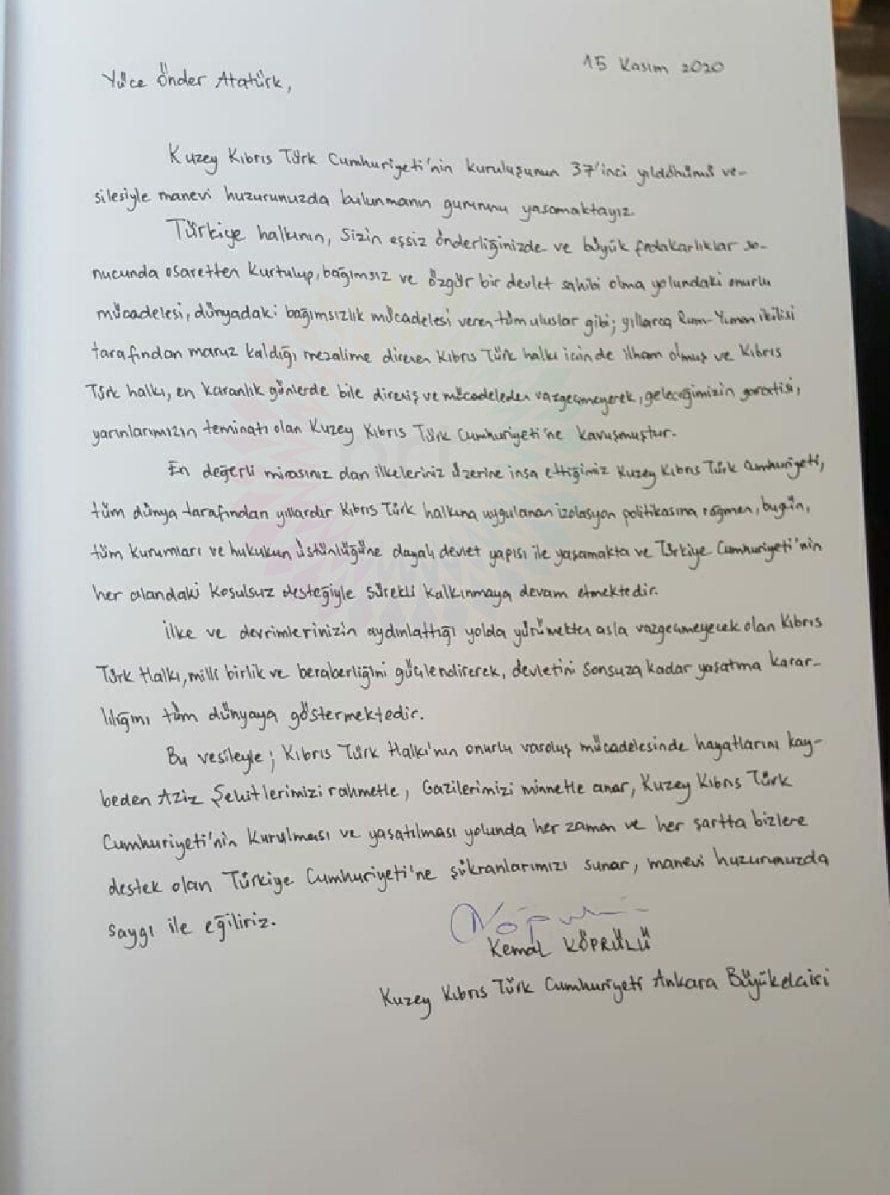 15 Kasım 2020
Yüce Önder Atatürk,
Kuzey Kıbrıs Türk Cumhuriyeti'nin kuruluşunun 37'inci yıldönümü ve-
silesiyle manevi huzurunuzda bulunmanın gururunu yaşamaktayız
Türkiye halkının, Sizin eşsiz önderliğinizde ve büyük fedakarlıklar so-
nucunda esaretten kurtulup, bağımsız ve özgür bir devlet sahibi olma yolundaki onurlu
mücadelesi, dünyadaki bağımsızlık mücadelesi veren tüm uluslar gibi; yıllarca Rum-Yunan ikilisi
tarafından maruz kaldığı mezalime direnen Kıbrıs Türk halkı içinde ilham olmuş ve Kıbrıs
Türk halkı, en karanlık günlerde bile direniş ve mücadeleden vazgeçmeyerek, geleceğimizin garantisi,
yarınlarımızın teminatı olan Kuzey Kıbrıs Türk Cumhuriyeti'ne kavuşmuştur.
En değerli mirasınız olan ilkeleriniz üzerine inşa ettiğimiz Kuzey Kıbrıs Türk Cumhuriyeti,
tüm dünya tarafından yıllardır Kıbrıs Türk halkına uygulanan izolasyon politikasına rağmen, bugün,
tüm kurumları ve hukukun üstünlüğüne dayalı devlet yapısı ile yaşamakta ve Türkiye Cumhuriyeti'nin
her alandaki koşulsuz desteğiyle sürekli kalkınmaya devam etmektedir.
İlke ve devrimlerinizin aydınlattığı yolda yürümekten asla vazgeçmeyecek olan Kıbrıs
Türk Halkı, milli birlik ve beraberliğini güçlendirerek, devletini sonsuza kadar yaşatma karar-
lılığını tüm dünyaya göstermektedir.
Bu vesileyle; Kıbrıs Türk Halkı'nın onurlu varoluş mücadelesinde hayatlarını kay-
beden Aziz Şehitlerimizi rahmetle, Gazilerimizi minnetle anar, Kuzey Kıbrıs Türk
Cumhuriyeti'nin Kurulması ve yaşatılması yolunda her zaman ve her şartta bizlere
destek olan Türkiye Cumhuriyeti'ne şükranlarımızı sunar, manevi huzurunuzda
saygı ile eğiliriz.
Kemal KÖPRÜLÜ
Kuzey Kıbrıs Türk Cumhuriyeti Ankara Büyükelçisi